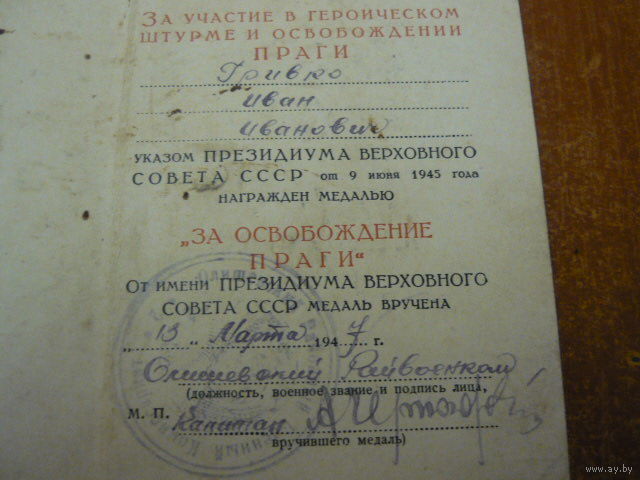 За участие в героическом
штурме и освобождении
Праги
Гривко
Иван
Иванович
указом Президиума Верховного
Совета СССР от 9 июня 1945 года
награжден медалью
„За освобождение
Праги“
От имени Президиума Верховного
Совета СССР медаль вручена
„13„ Марта 1947 г.
Райвоенком
(должность, военное звание и подпись лица,
М. П. Капитан
вручившего медаль)
www.ay.by